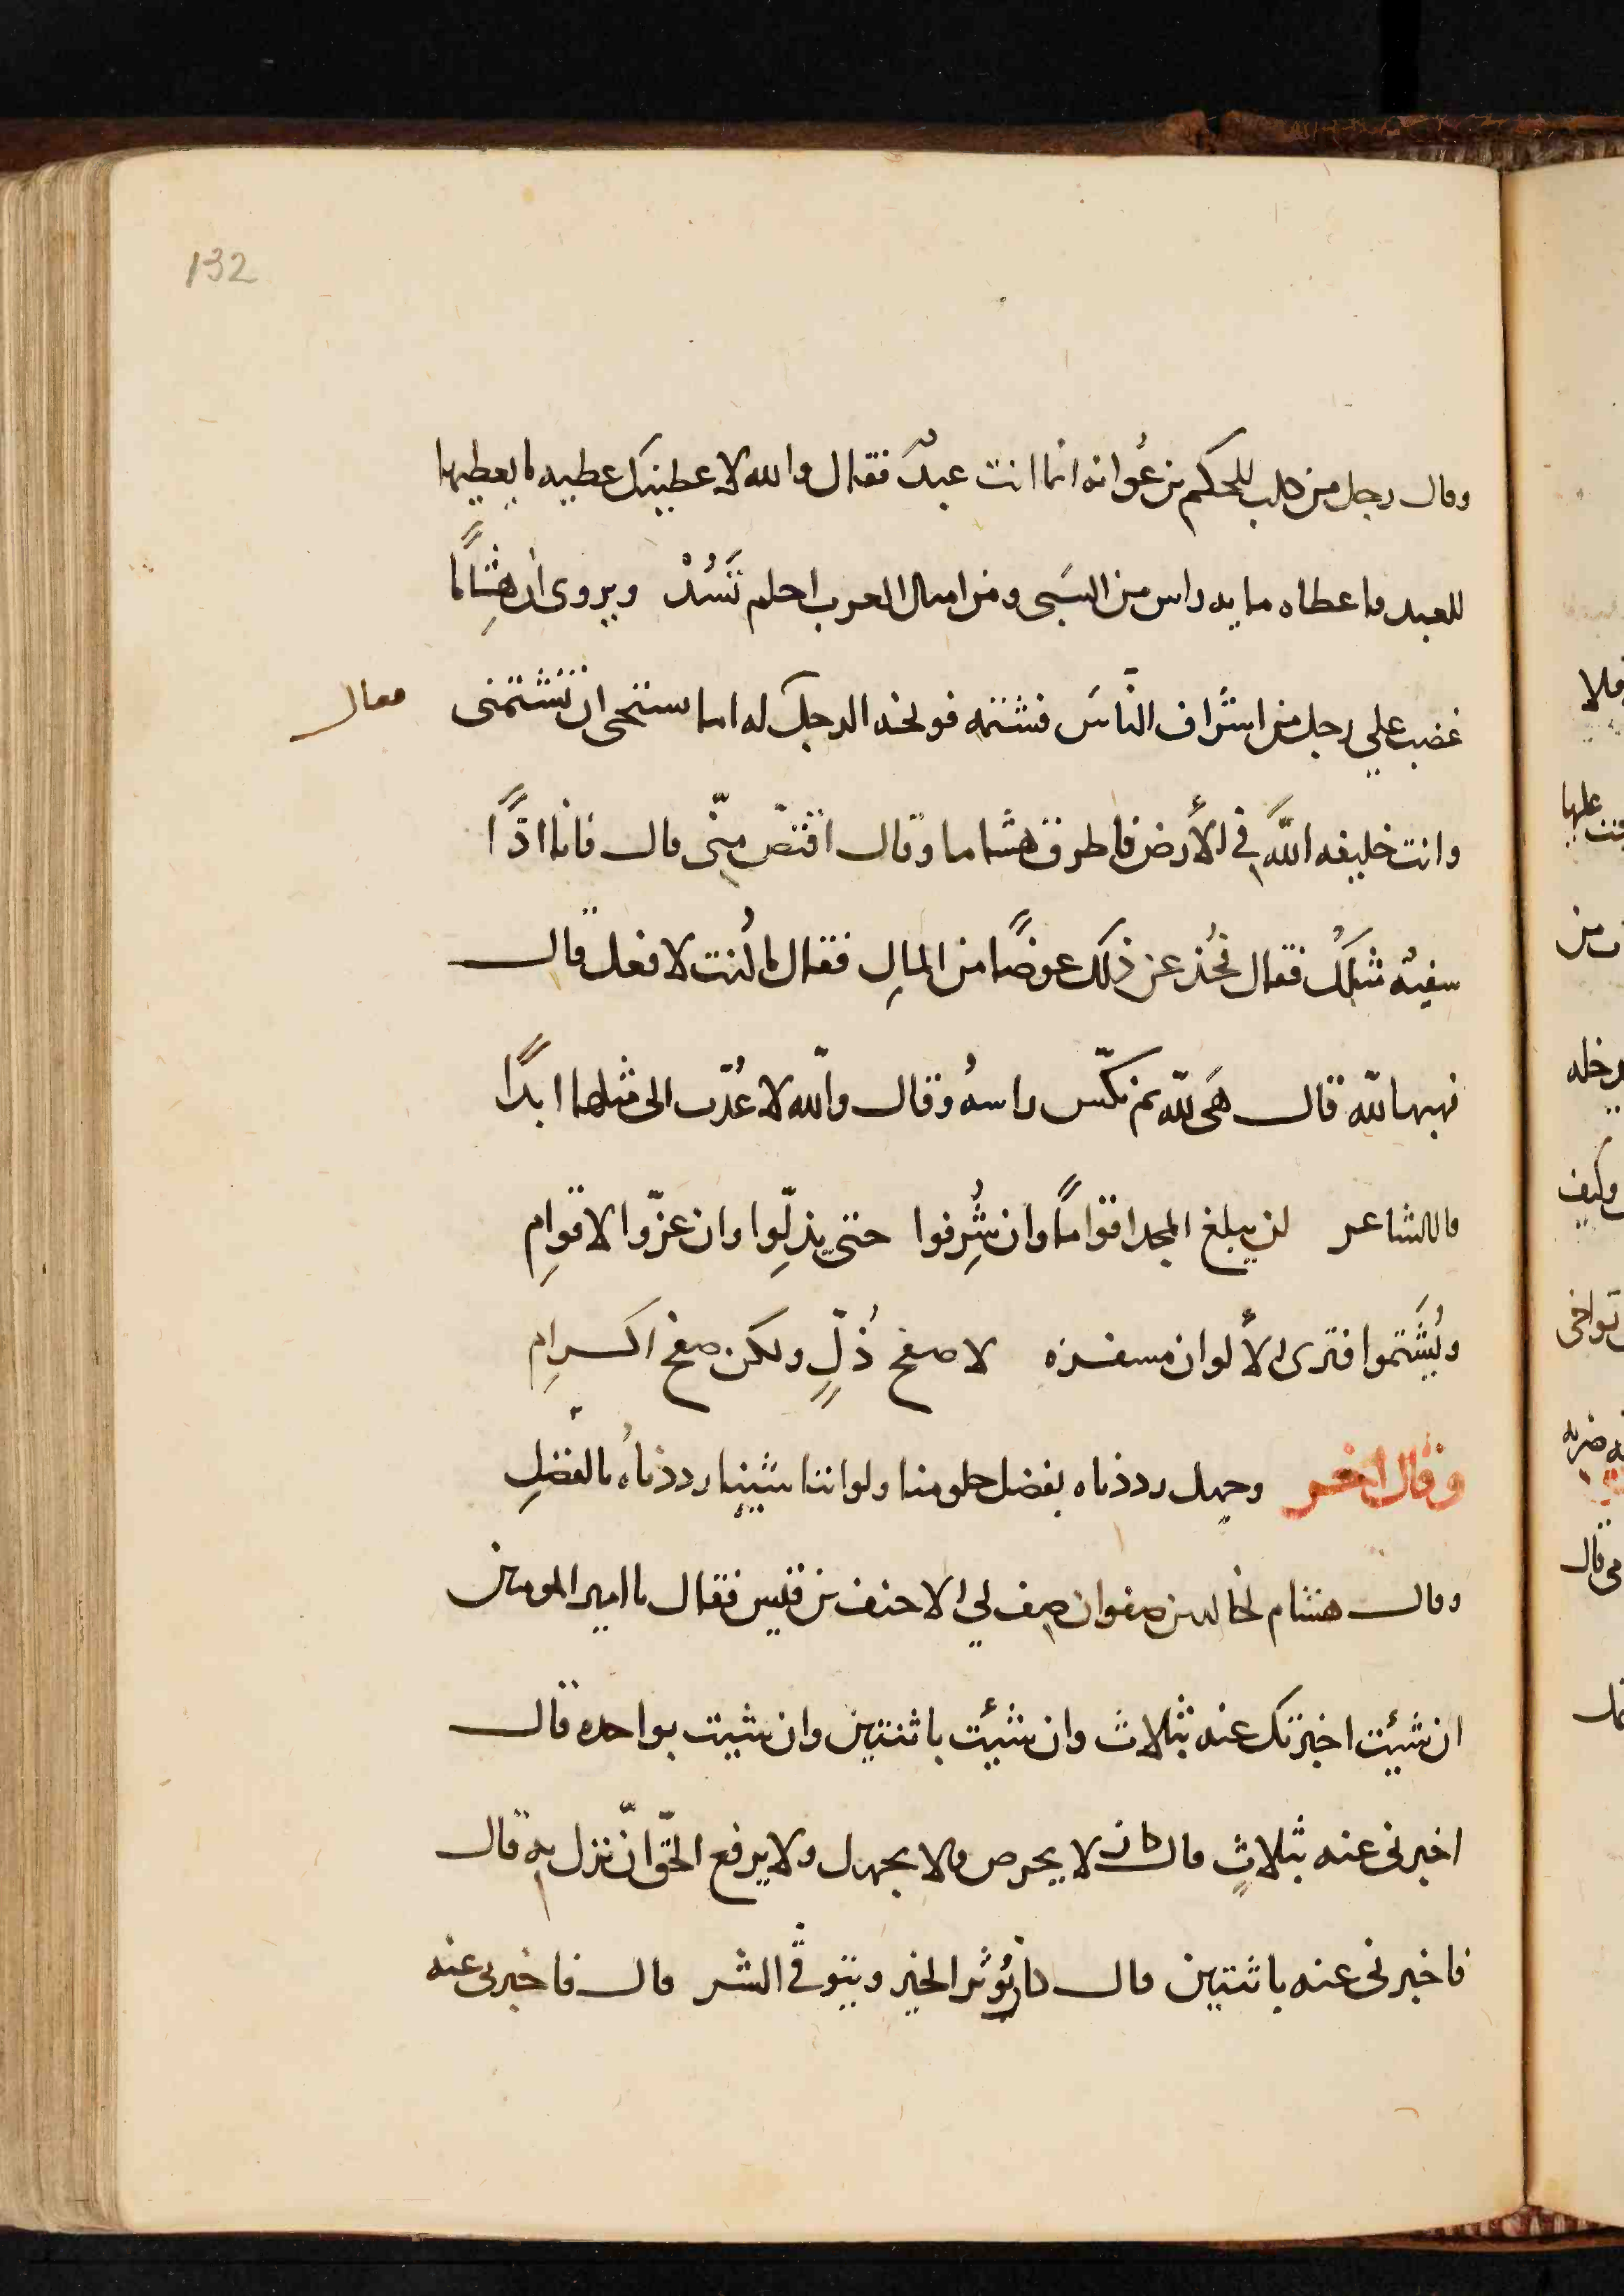 132
وقال رجل من كلب للحكم بن عُوانه انما انت عبدٌ فقال والله لاعطينك عطيه ما يعطيها
للعبد فاعطاه مايه راس من السَبى ومن امثال العرب احلم تَسُدْ ويروى ان هِشَامًا
غضب على رجل من اشراف الناسَ فشتمه فوبخه الرجل له اما ستحى ان تشتمنى
فقال
وانت خليفه اللهِ في الأرض فاطرق هشاما وقال اقتصّ مِنّى قال فانا اذًا
سفيهٌ مثلكُ فقال فخُذ عن ذلك عوضًا من المالِ فقال ما كُنت لا فعل قال
فهبها لله قال هَى لله ثم نكّس راسهُ وقال والله لا عُدّت الى مثلها ابدًا
قال الشاعر لن يبلغ المجد اقوامًا وان شُرِفوا حتى يذلِّوا وان عزّوا لاقوامِ
ويُشَتموا فترى الألوان مسفرَه لا صفح ذُلٍّ ولكن صفح اكرامِ
وقال اخر وجهل رددناه بفضل حلومنا ولو اننا شينا رددناهُ بالفضلِ
وقال هشام لخالد بن صفوان صِف لي الاحنف بن قيس فقال يا امير المومنين
ان شئت اخبرتك عنه بثلاث وان شئت باثنتين وان شيت بواحده قال
اخبرنى عنه بثلاثٍ قال كان لا يحرص ولا يجهل ولا يدفع الحقّ ان نزل بِه قال
فاخبرنى عنه باثنتين قال كان يُوثر الخير ويتوقى الشر قال فاخبرنى عنه